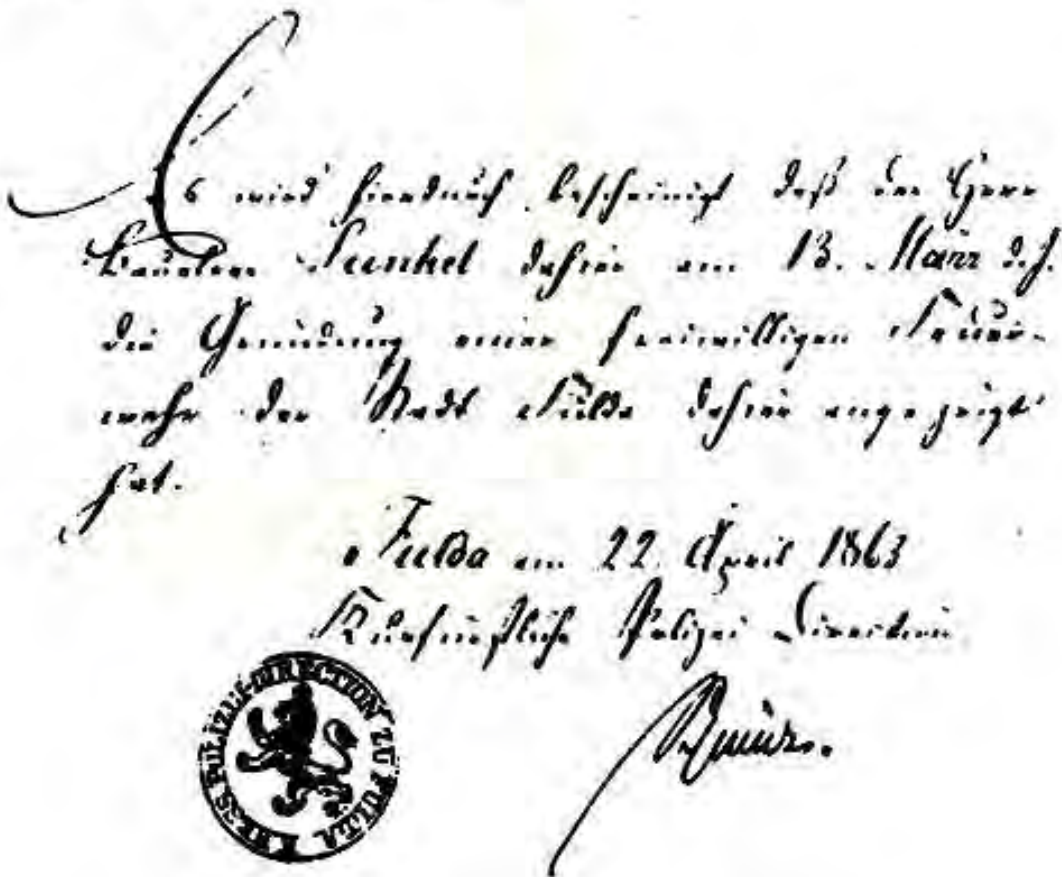 Es wird hierdurch bescheinigt daß der Herr
Sunkel dahier am 13. März d. J.
die Gründung einer freiwilligen Feuer-
wehr der Stadt Fulda dahier angezeigt
hat.
Fulda am 22. April 1863
Kurfürstliche Polizei Direction
KREIS POLIZEI-DIRECTION ZU FULDA